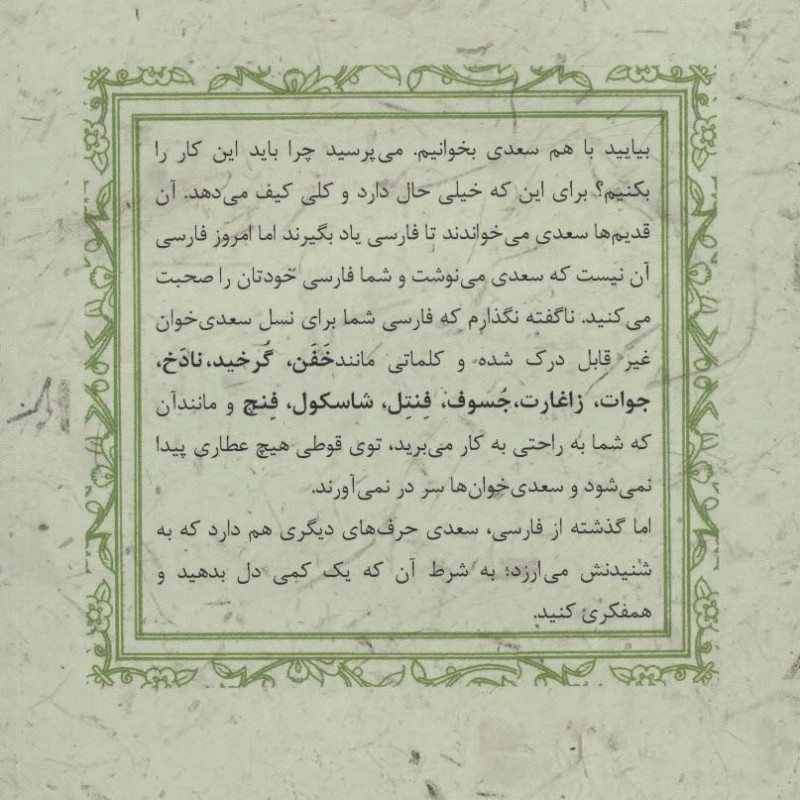 بیایید با هم سعدی بخوانیم. می‌پرسید چرا باید این کار را
بکنیم؟ برای این که خیلی حال دارد و کلی کیف می‌دهد. آن
قدیم‌ها سعدی می‌خواندند تا فارسی یاد بگیرند اما امروز فارسی
آن نیست که سعدی می‌نوشت و شما فارسی خودتان را صحبت
می‌کنید. ناگفته نگذارم که فارسی شما برای نسل سعدی‌خوان
غیر قابل درک شده و کلماتی مانندخَفَن، گُرخید،نادَخ،
جوات، زاغارت،جُسوف، فِنتِل، شاسکول، فِنچ و مانندآن
که شما به راحتی به کار می‌برید، توی قوطی هیچ عطاری پیدا
نمی‌شود و سعدی‌خوان‌ها سر در نمی‌آورند.
اما گذشته از فارسی، سعدی حرف‌های دیگری هم دارد که به
شنیدنش می‌ارزد؛ به شرط آن که یک کمی دل بدهید و
همفکری کنید.